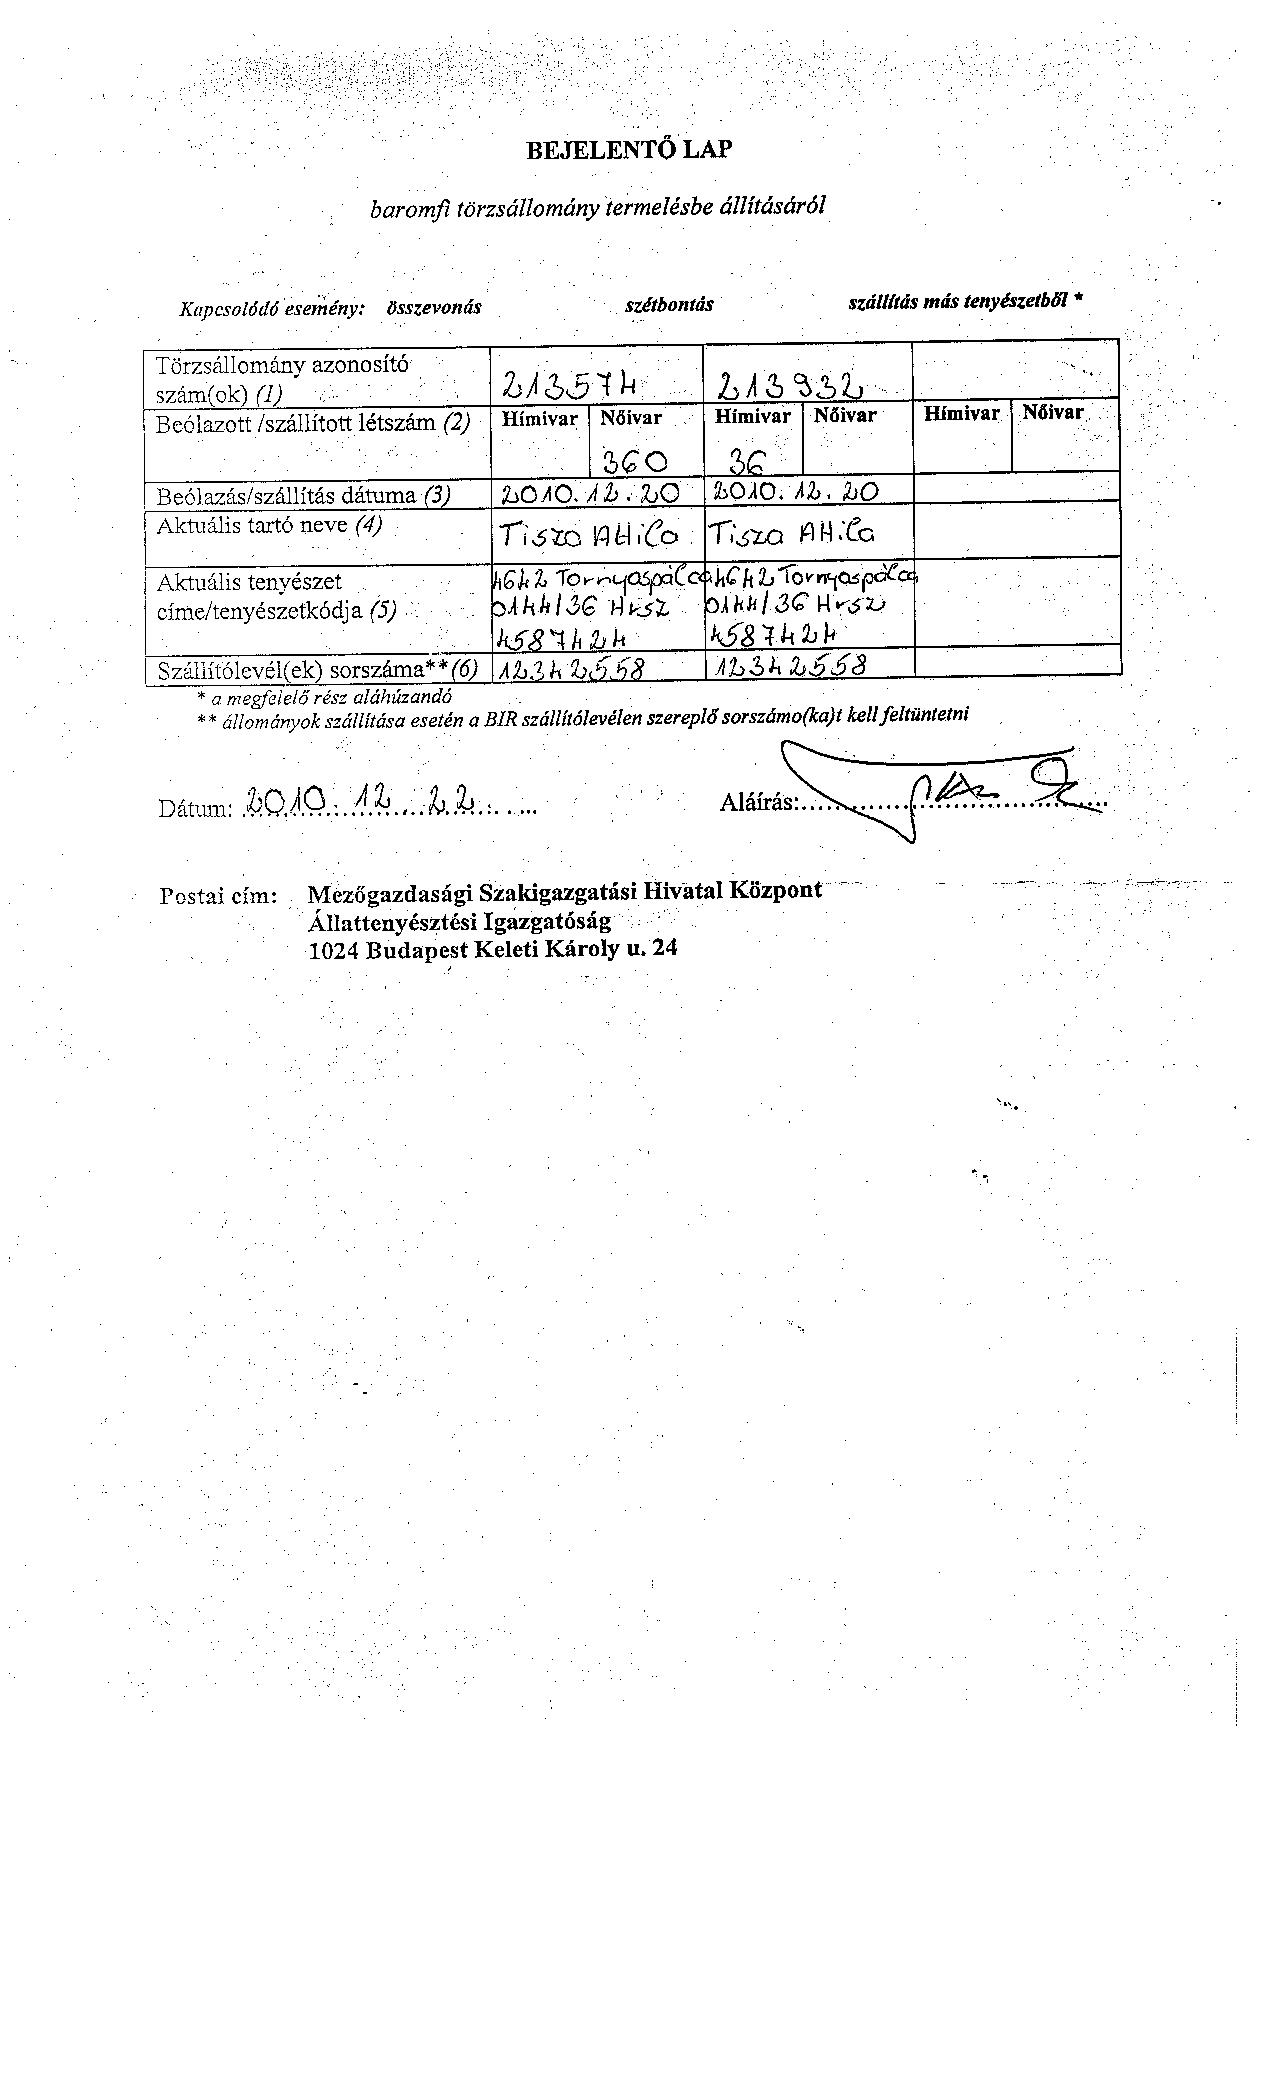 BEJELENTŐ LAP
baromfi törzsállomány termelésbe állításáról
Kapcsolódó esemény: összevonás szétbontás szállítás más tenyészetből *
Törzsállomány azonosító
szám(ok) (1) 213574 213932
Beólazott /szállított létszám (2) Hímivar Nőivar Hímivar Nőivar Hímivar Nőivar
360 36
Beólazás/szállítás dátuma (3) 2010. 12. 20 2010. 12. 20
Aktuális tartó neve (4) Tisza Attila Tisza Attila
Aktuális tenyészet 4642 Tornyospálca 4642 Tornyospálca
címe/tenyészetkódja (5) 0144/36 Hrsz 0144/36 Hrsz
4587424 4587424
Szállítólevél(ek) sorszáma**(6) 12342558 12342558
* a megfelelő rész aláhúzandó
** állományok szállítása esetén a BIR szállítólevélen szereplő sorszámo(ka)t kell feltüntetni
Dátum: 2010. 12. 22. Aláírás:
Postai cím: Mezőgazdasági Szakigazgatási Hivatal Központ
Állattenyésztési Igazgatóság
1024 Budapest Keleti Károly u. 24